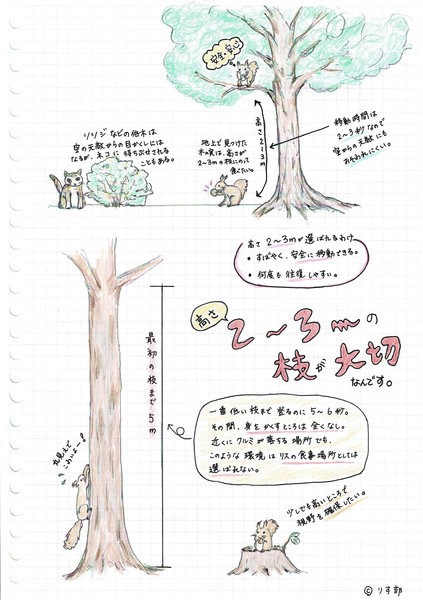 安全・安心
ツツジなどの低木は
空の天敵からの目かくしには
なるが、ネコに待ちぶせされる
こともある。
地上で見つけた
木の実は、高さが
2〜3mの枝にのって
食べたい。
高さ2〜3m
移動時間は
2〜3秒なので
空からの天敵にも
おそわれにくい。
高さ2〜3mが選ばれるわけ
・すばやく、安全に移動できる。
・何度も往復しやすい。
高さ
2〜3mの
枝が大切
なんです。
最初の枝まで5m
一番低い枝まで登るのに5〜6秒。
その間、身をかくすところは全くなし。
近くにクルミが落ちる場所でも、
このような環境はリスの食事場所としては
選ばれない。
丸見えで
こわいよー!
少しでも高いところで
視野を確保したい。
© りす部